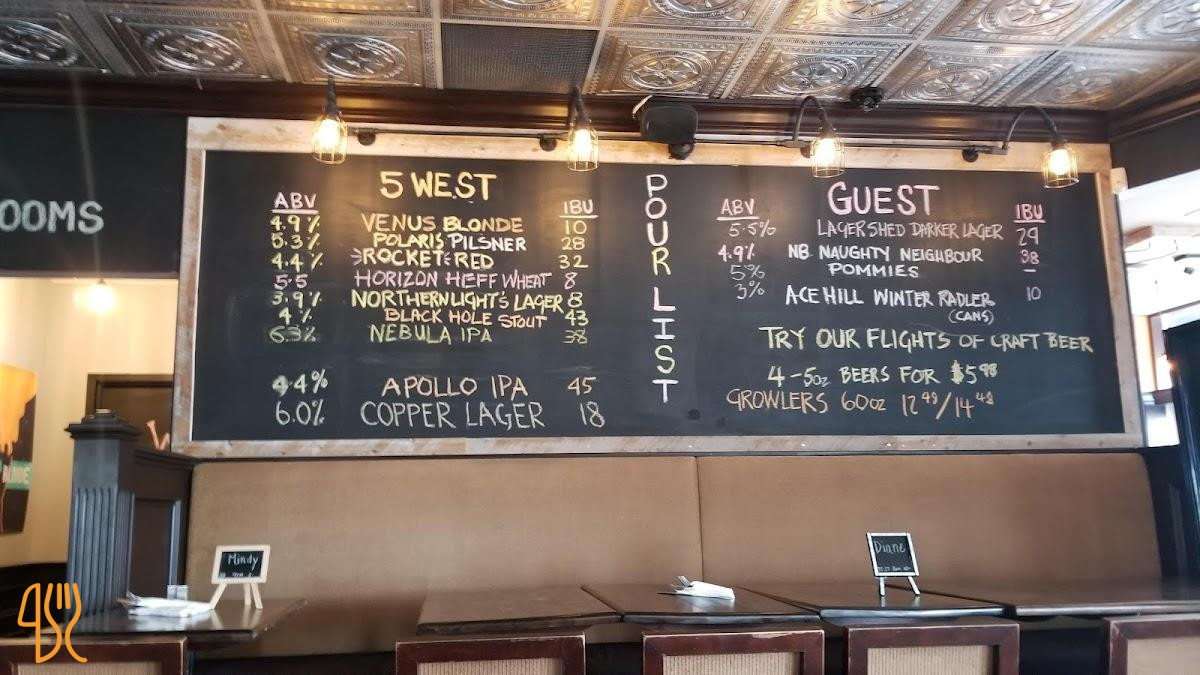 OOMS
5 WEST
ABV IBU
4.9% VENUS BLONDE 10
5.3% POLARIS PILSNER 28
4.4% ROCKET RED 32
5.5 HORIZON HEFF WHEAT 8
3.9% NORTHERN LIGHTS LAGER 8
4% BLACK HOLE STOUT 43
6.3% NEBULA IPA 38
4.4% APOLLO IPA 45
6.0% COPPER LAGER 18
POUR LIST
GUEST
ABV IBU
5.5% LAGERSHED DARKER LAGER 29
4.9% NB NAUGHTY NEIGHBOUR 38
5% POMMIES –
3% ACE HILL WINTER RADLER 10
(CANS)
TRY OUR FLIGHTS OF CRAFT BEER
4-5oz BEERS FOR $5.98
GROWLERS 60oz 12 49/14 49
BLONDE
Mindy
Diane